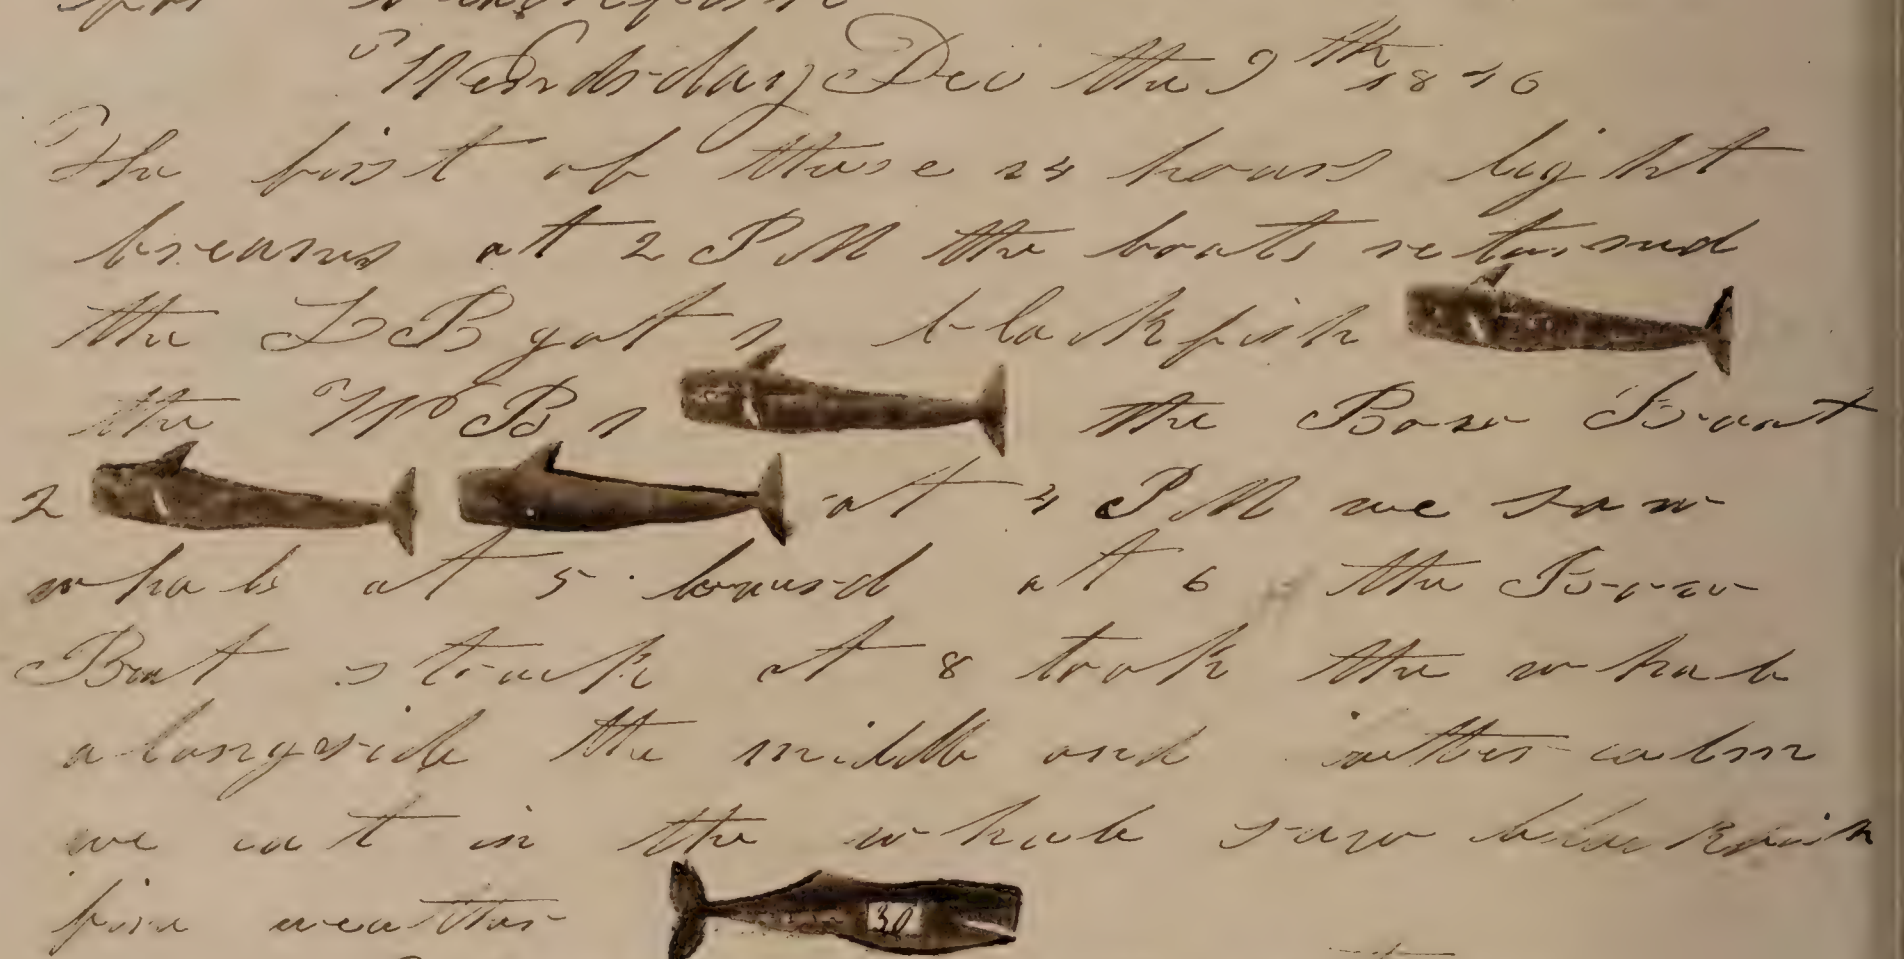 Wendsday Dec the 9th 1846
The first of these 24 hours light
breazes at 2 PM the boats returned
the LB got 1 blackfish
the WB 1 the Bow Boat
2 at 4 PM we saw
whals at 5 lowerd at 6 the Bow
Boat struck at 8 took the whale
alongside the middle and latter calm
we cut in the whale saw blackfish
fine weather
30